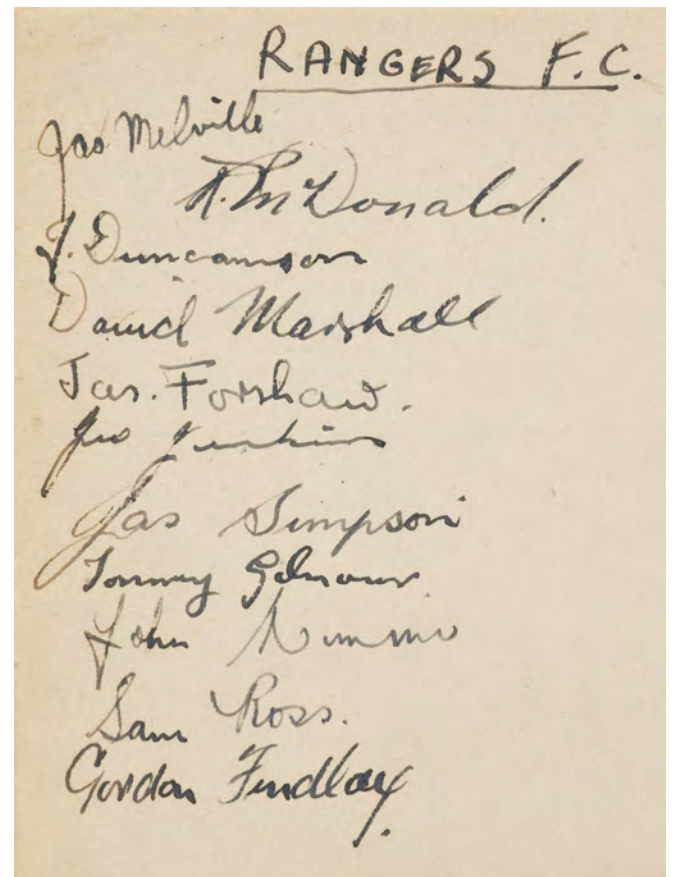 RANGERS F.C.
Jas Melville
R. McDonald.
J. Duncanson
David Marshall
Jas. Forshaw.
Jas Simpson
Tommy Gilmour.
John Nimmo
Sam Ross.
Gordon Findlay.